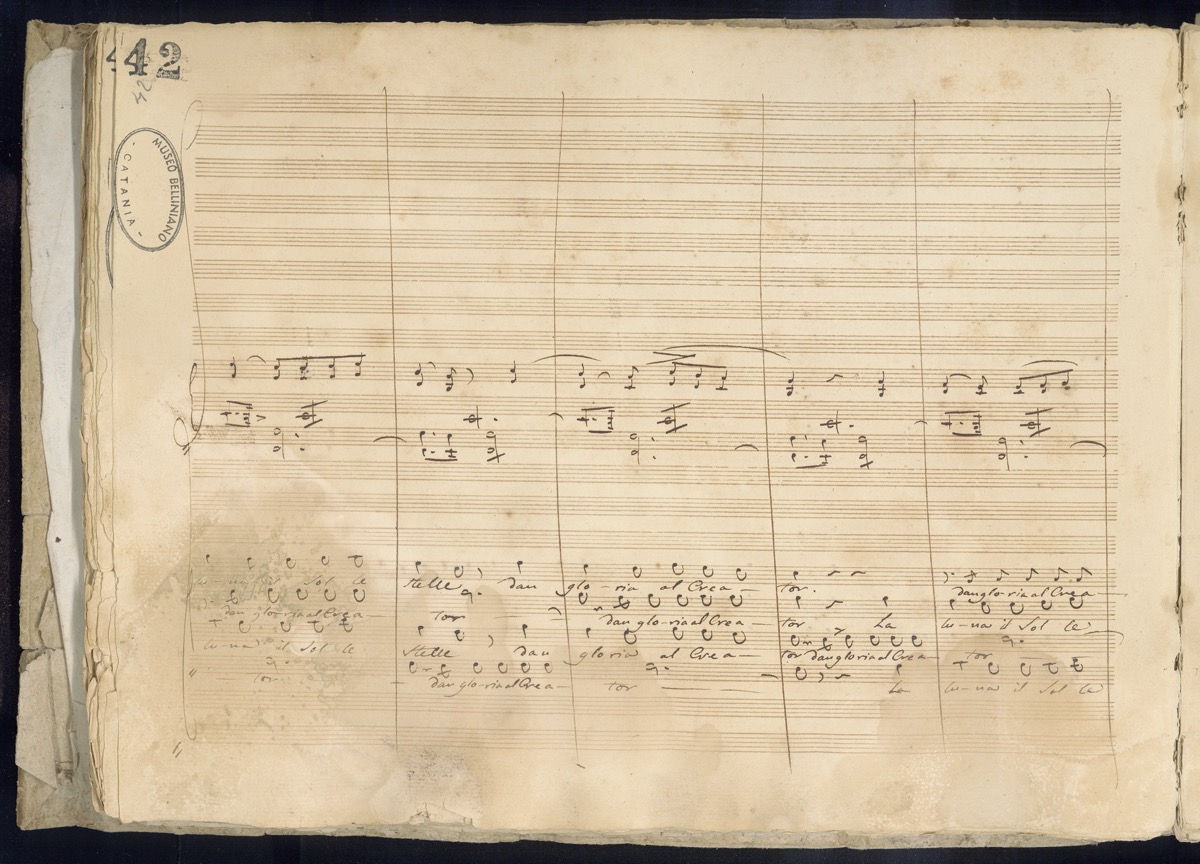 442
42
MUSEO BELLINIANO
- CATANIA -
lu-na il Sol le stelle dan glo-ria al Crea-tor. dan glo-ria al Crea-
dan glo-ria al Crea-tor dan glo-ria al Crea-tor La lu-na il Sol le
lu-na il Sol le Stelle dan gloria al Crea-tor dan gloria al Crea-tor
tor dan glo-ria al Crea-tor La lu-na il Sol le